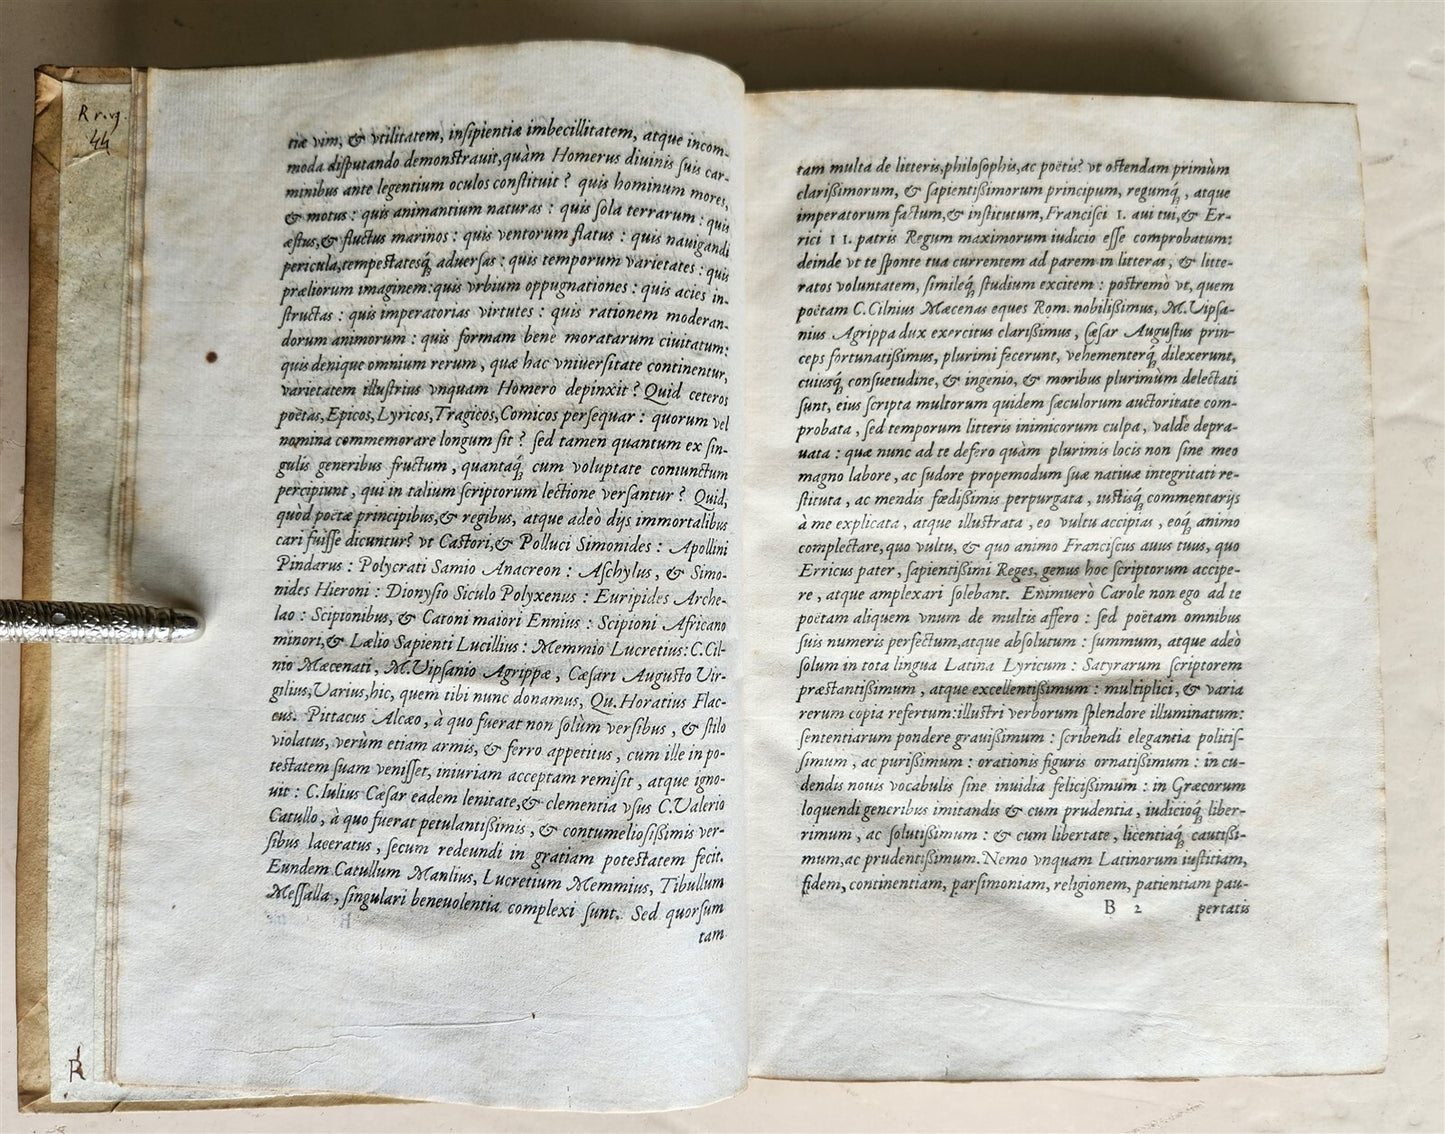 R r.vj.
44
tiæ vim, & vtilitatem, insipientiæ imbecillitatem, atque incom-
moda disputando demonstrauit, quàm Homerus diuinis suis car-
minibus ante legentium oculos constituit? quis hominum mores,
& motus: quis animantium naturas: quis sola terrarum: quis
æstus, & fluctus marinos: quis ventorum flatus: quis nauigandi
pericula, tempestatesq́; aduersas: quis temporum varietates: quis
præliorum imaginem: quis vrbium oppugnationes: quis acies in-
structas: quis imperatorias virtutes: quis rationem moderan-
dorum animorum: quis formam bene moratarum ciuitatum:
quis denique omnium rerum, quæ hac vniuersitate continentur,
varietatem illustrius vnquam Homero depinxit? Quid ceteros
poëtas, Epicos, Lyricos, Tragicos, Comicos persequar: quorum vel
nomina commemorare longum sit? sed tamen quantum ex sin-
gulis generibus fructum, quantaq́; cum voluptate coniunctum
percipiunt, qui in talium scriptorum lectione versantur? Quid,
quòd poëtæ principibus, & regibus, atque adeò dijs immortalibus
cari fuisse dicuntur? vt Castori, & Polluci Simonides: Apollini
Pindarus: Polycrati Samio Anacreon: Aschylus, & Simo-
nides Hieroni: Dionysio Siculo Polyxenus: Euripides Arche-
lao: Scipionibus, & Catoni maiori Ennius: Scipioni Africano
minori, & Lælio Sapienti Lucillius: Memmio Lucretius: C. Cil-
nio Mæcenati, M. Vipsanio Agrippæ, Cæsari Augusto Vir-
gilius, Varius, hic, quem tibi nunc donamus, Qu. Horatius Flac-
cus. Pittacus Alcæo, à quo fuerat non solùm versibus, & stilo
violatus, verùm etiam armis, & ferro appetitus, cum ille in po-
testatem suam venisset, iniuriam acceptam remisit, atque igno-
uit: C. Iulius Cæsar eadem lenitate, & clementia vsus C. Valerio
Catullo, à quo fuerat petulantißimis, & contumeliosißimis ver-
sibus laceratus, secum redeundi in gratiam potestatem fecit.
Eundem Catullum Manlius, Lucretium Memmius, Tibullum
Messalla, singulari beneuolentia complexi sunt. Sed quorsum
tam
R
tam multa de litteris, philosophis, ac poëtis? vt ostendam primùm
clarißimorum, & sapientißimorum principum, regumq́;, atque
imperatorum factum, & institutum, Francisci I. aui tui, & Er-
rici II. patris Regum maximorum iudicio esse comprobatum:
deinde vt te sponte tua currentem ad parem in litteras, & litte-
ratos voluntatem, similéq́; studium excitem: postremò vt, quem
poëtam C. Cilnius Mæcenas eques Rom. nobilißimus, M. Vipsa-
nius Agrippa dux exercitus clarißimus, Cæsar Augustus prin-
ceps fortunatißimus, plurimi fecerunt, vehementerq́; dilexerunt,
cuiusq́; consuetudine, & ingenio, & moribus plurimùm delectati
sunt, eius scripta multorum quidem sæculorum auctoritate com-
probata, sed temporum litteris inimicorum culpa, valdè depra-
uata: quæ nunc ad te defero quàm plurimis locis non sine meo
magno labore, ac sudore propemodum suæ natiuæ integritati re-
stituta, ac mendis fœdißimis perpurgata, iustisq́; commentarijs
à me explicata, atque illustrata, eo vultu accipias, eoq́; animo
complectare, quo vultu, & quo animo Franciscus auus tuus, quo
Erricus pater, sapientißimi Reges, genus hoc scriptorum accipe-
re, atque amplexari solebant. Enimuerò Carole non ego ad te
poëtam aliquem vnum de multis affero: sed poëtam omnibus
suis numeris perfectum, atque absolutum: summum, atque adeò
solum in tota lingua Latina Lyricum: Satyrarum scriptorem
præstantißimum, atque excellentißimum: multiplici, & varia
rerum copia refertum: illustri verborum splendore illuminatum:
sententiarum pondere grauißimum: scribendi elegantia politis-
simum, ac purißimum: orationis figuris ornatißimum: in cu-
dendis nouis vocabulis sine inuidia felicißimum: in Græcorum
loquendi generibus imitandis & cum prudentia, iudicioq́; liber-
rimum, ac solutißimum: & cum libertate, licentiaq́; cautißi-
mum, ac prudentißimum. Nemo vnquam Latinorum iustitiam,
fidem, continentiam, parsimoniam, religionem, patientiam pau-
B 2 pertatis